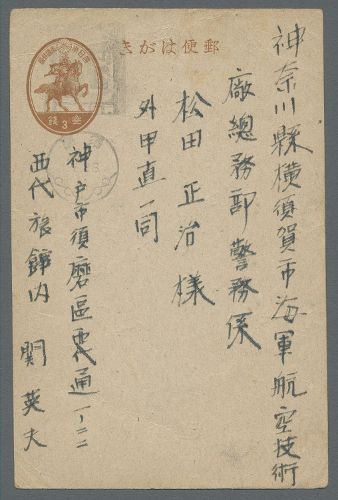 郵便はがき
參錢
3
神奈川縣横須賀市海軍航空技術
廠總務部警務係
松田正治様
外甲直一同
神戸市須磨區西代通一ノ二二
西代旅館内 関英夫